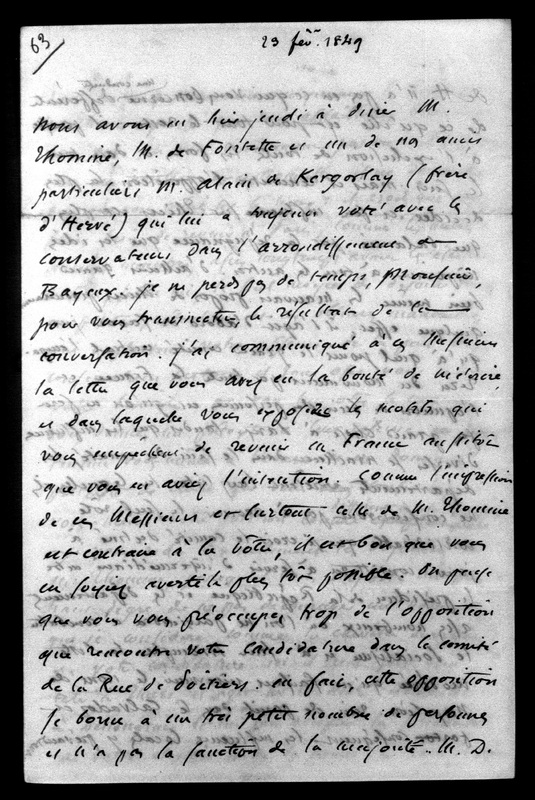 63/
23 fév. 1849
Nous avons eu hier jeudi à diner M.
Thomine, M. de Fontette et un de nos amis
particuliers M. Alain de Kergorlay (frère
d'Hervé) qui lui a toujours voté avec les
conservateurs dans l'arrondissement de
Bayeux. je ne perds pas de temps, Monsieur,
pour vous transmettre le résultat de la
conversation. j'ai communiqué à ces Messieurs
la lettre que vous avez eu la bonté de m'écrire
et dans laquelle vous exposez les motifs qui
vous empêchent de revenir en France aussitôt
que vous en aviez l'intention. Comme l'impression
de ces Messieurs et surtout celle de M. Thomine
est contraire à la vôtre, il est bon que vous
en soyiez averti le plus tôt possible. On pense
que vous vous préoccupez trop de l'opposition
que rencontre votre candidature dans le comité
de la Rue de Poitiers. en fait, cette opposition
se borne à un très petit nombre de personnes
et n'a pas la sanction de la majorité. M. D.